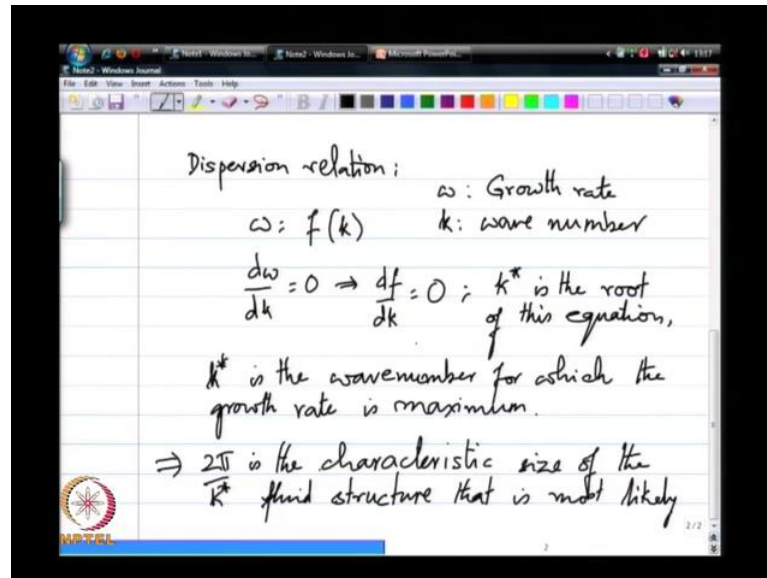 Note1 - Windows Jo... Note2 - Windows Jo... Microsoft PowerPoi... 1317
Note2 - Windows Journal
File Edit View Insert Actions Tools Help
Dispersion relation:
ω: Growth rate
ω: f(k) k: wave number
dω/dk = 0 ⇒ df/dk = 0 ; k* is the root
of this equation,
k* is the wavenumber for which the
growth rate is maximum.
⇒ 2π/k* is the characteristic size of the
fluid structure that is most likely
NPTEL
2/2
2